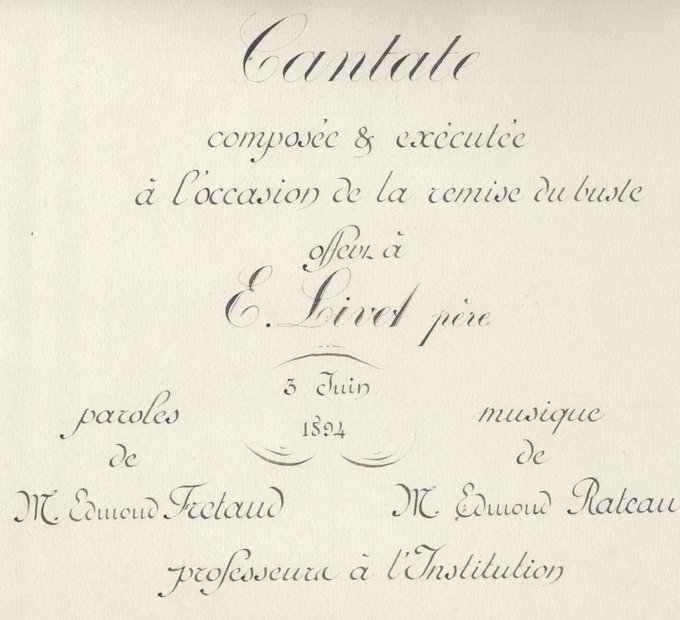 Cantate
composée & exécutée
à l'occasion de la remise du buste
offert à
E. Livet père
3 Juin
1894
paroles
de
M. Edmond Fretaud
musique
de
M. Edmond Rateau
professeurs à l'Institution